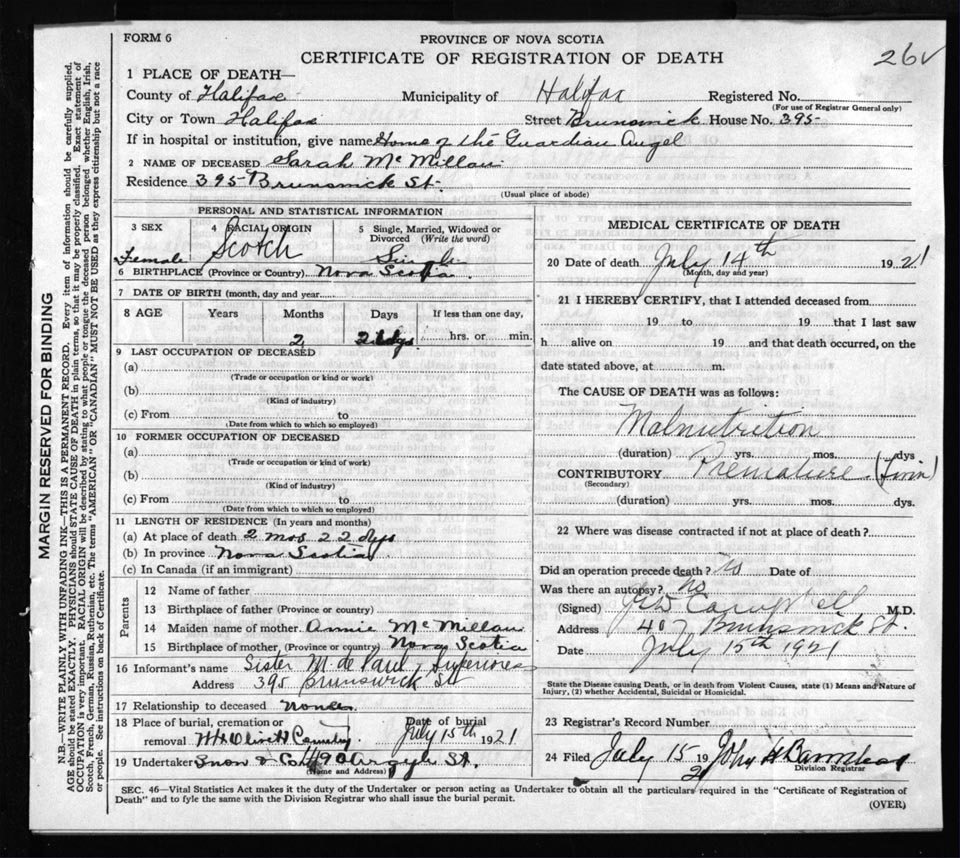 FORM 6
PROVINCE OF NOVA SCOTIA
CERTIFICATE OF REGISTRATION OF DEATH
26
1 PLACE OF DEATH—
County of Halifax Municipality of Halifax Registered No.
(For use of Registrar General only)
City or Town Halifax Street Brunswick House No. 395
If in hospital or institution, give name Home of the Guardian Angel
2 NAME OF DECEASED Sarah McMillan
Residence 395 Brunswick St.
(Usual place of abode)
PERSONAL AND STATISTICAL INFORMATION
3 SEX 4 RACIAL ORIGIN 5 Single, Married, Widowed or Divorced (Write the word)
Female Scotch Single
6 BIRTHPLACE (Province or Country) Nova Scotia
7 DATE OF BIRTH (month, day and year)
8 AGE Years Months Days If less than one day,
2 hrs. or min.
9 LAST OCCUPATION OF DECEASED
(a)
(Trade or occupation or kind or work)
(b)
(Kind of industry)
(c) From to
(Date from which to which so employed)
10 FORMER OCCUPATION OF DECEASED
(a)
(Trade or occupation or kind of work)
(b)
(Kind of industry)
(c) From to
(Date from which to which so employed)
11 LENGTH OF RESIDENCE (In years and months)
(a) At place of death 2 mos 22 dys
(b) In province Nova Scotia
(c) In Canada (if an immigrant)
Parents
12 Name of father
13 Birthplace of father (Province or country)
14 Maiden name of mother Annie McMillan
15 Birthplace of mother (Province or country) Nova Scotia
16 Informant's name Sister M. de Paul, Superioress
Address 395 Brunswick St
17 Relationship to deceased
18 Place of burial, cremation or removal Mt Olivet Cemetery Date of burial July 15th 1921
19 Undertaker Snow & Co 90 Argyle St.
(Name and Address)
MEDICAL CERTIFICATE OF DEATH
20 Date of death July 14th 1921
(Month, day and year)
21 I HEREBY CERTIFY, that I attended deceased from
19 to 19 that I last saw
h alive on 19 and that death occurred, on the
date stated above, at m.
The CAUSE OF DEATH was as follows:
Malnutrition
(duration) yrs. mos. dys
CONTRIBUTORY Premature (Twin)
(Secondary)
(duration) yrs. mos. dys.
22 Where was disease contracted if not at place of death?
Did an operation precede death? No Date of
Was there an autopsy? no
(Signed) Campbell M.D.
Address 407 Brunswick St.
Date July 15th 1921
State the Disease causing Death, or in death from Violent Causes, state (1) Means and Nature of
Injury, (2) whether Accidental, Suicidal or Homicidal.
23 Registrar's Record Number
24 Filed July 15 1921 John H
Division Registrar
SEC. 46—Vital Statistics Act makes it the duty of the Undertaker or person acting as Undertaker to obtain all the particulars required in the "Certificate of Registration of
Death" and to fyle the same with the Division Registrar who shall issue the burial permit.
(OVER)
MARGIN RESERVED FOR BINDING
N.B.—WRITE PLAINLY WITH UNFADING INK—THIS IS A PERMANENT RECORD. Every item of information should be carefully supplied.
AGE should be stated EXACTLY. PHYSICIANS should STATE CAUSE OF DEATH in plain terms, so that it may be properly classified. Exact statement of
OCCUPATION is very important. RACIAL ORIGIN will be described by stating to what people or tongue the deceased person belonged whether English, Irish,
Scotch, French, German, Russian, Ruthenian, etc. The terms "AMERICAN" OR "CANADIAN" MUST NOT BE USED as they express citizenship but not a race
or people. See instructions on back of Certificate.